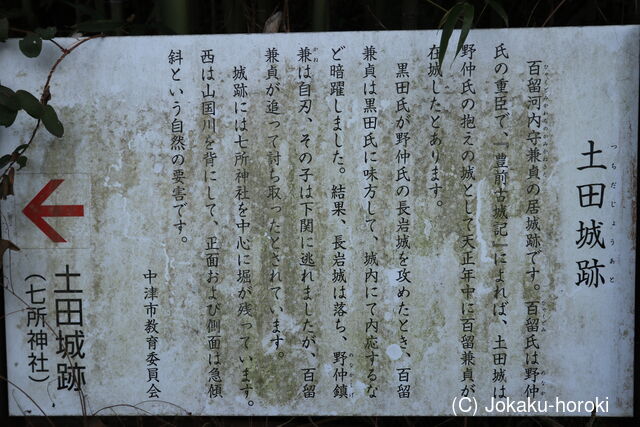 土田城跡
つちだじょうあと
百留河内守兼貞の居城跡です。百留氏は野仲
氏の重臣で、『豊前古城記』によれば、土田城は
野仲氏の抱えの城として天正年中に百留兼貞が
在城したとあります。
黒田氏が野仲氏の長岩城を攻めたとき、百留
兼貞は黒田氏に味方して、城内にて内応するな
ど暗躍しました。結果、長岩城は落ち、野仲鎮
兼は自刃、その子は下関に逃れましたが、百留
兼貞が追って討ち取ったとされています。
城跡には七所神社を中心に堀が残っています。
西は山国川を背にして、正面および側面は急傾
斜という自然の要害です。
中津市教育委員会
土田城跡
(七所神社)
(C) Jokaku-horoki